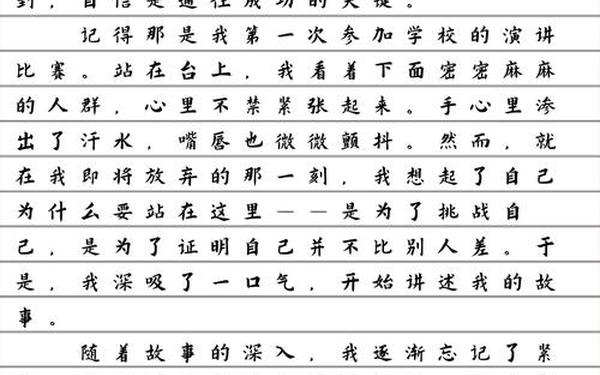 到，自信是通往成功的关键。
记得那是我第一次参加学校的演讲
比赛。站在台上，我看着下面密密麻麻
的人群，心里不禁紧张起来。手心里渗
出了汗水，嘴唇也微微颤抖。然而，就
在我即将放弃的那一刻，我想起了自己
为什么要站在这里——是为了挑战自
己，是为了证明自己并不比别人差。于
是，我深吸了一口气，开始讲述我的故
事。
随着故事的深入，我逐渐忘记了紧